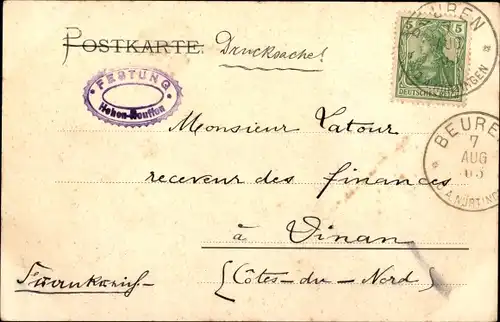 POSTKARTE. Drucksache!
5 5
DEUTSCHES REICH
BEUREN
FESTUNG
Hohen-Neuffen
BEUREN
7
AUG
05
O.A. NÜRTINGEN
Monsieur Latour
receveur des finances
à Dinan
(Côtes-du-Nord)
Frankreich.